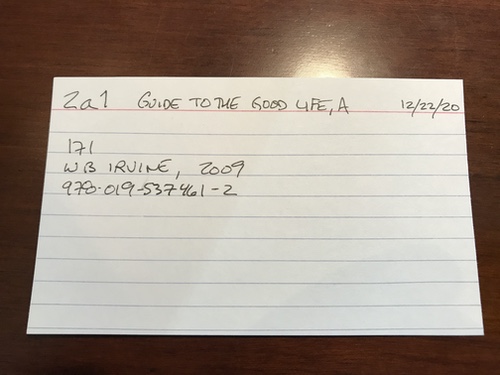 2a1 GUIDE TO THE GOOD LIFE, A 12/22/20
171
WB IRVINE, 2009
978-019-537461-2